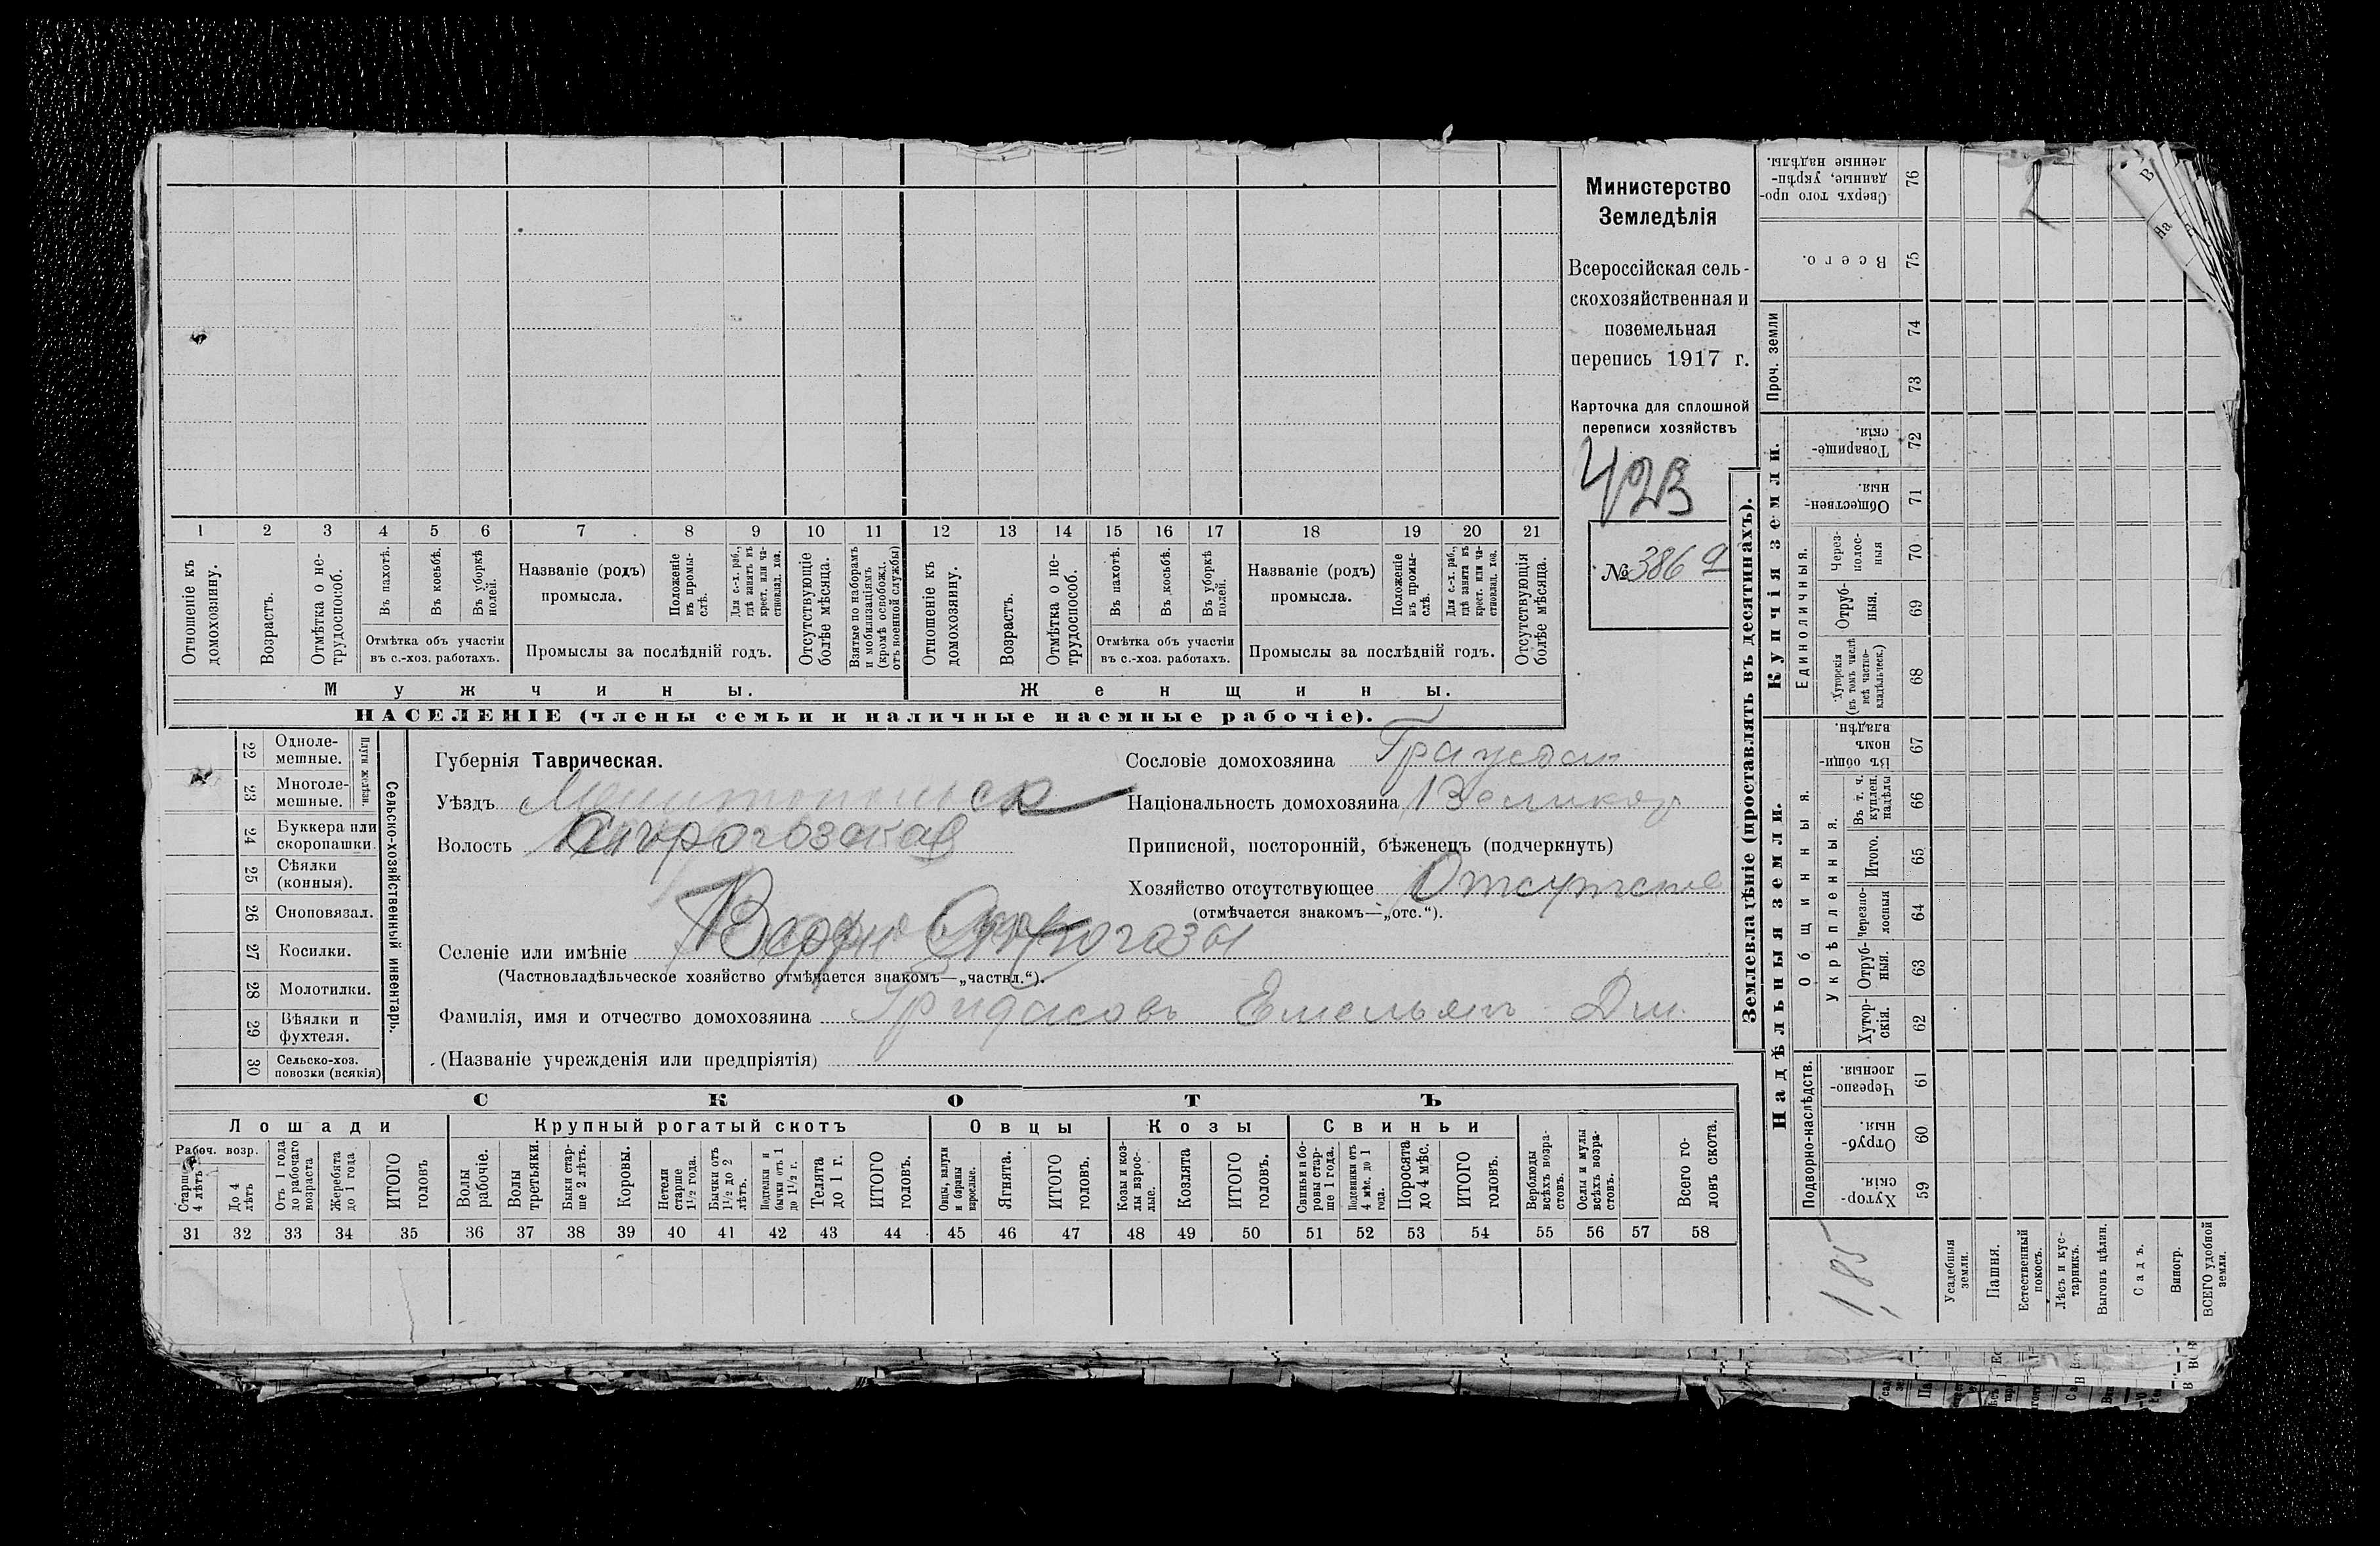 Министерство
Земледѣлія
Всероссійская сель-
скохозяйственная и
поземельная
перепись 1917 г.
Карточка для сплошной
переписи хозяйствъ
42В
№ 386
1 2 3 4 5 6 7 8 9 10 11 12 13 14 15 16 17 18 19 20 21
Отношеніе къ домохозяину.
Возрастъ.
Отмѣтка о не-трудоспособ.
Въ пахотѣ.
Въ косьбѣ.
Въ уборкѣ полей.
Названіе (родъ) промысла.
Положеніе въ промы-слѣ.
Для с.-х. раб., гдѣ занятъ въ крест. или ча-стновлад. хоз.
Отсутствующіе болѣе мѣсяца.
Взятые по наборамъ и мобилизаціямъ (кромѣ освобожд. отъ военной службы)
Отношеніе къ домохозяину.
Возрастъ.
Отмѣтка о не-трудоспособ.
Въ пахотѣ.
Въ косьбѣ.
Въ уборкѣ полей.
Названіе (родъ) промысла.
Положеніе въ промы-слѣ.
Для с.-х. раб., гдѣ занята въ крест. или ча-стновлад. хоз.
Отсутствующія болѣе мѣсяца.
Отмѣтка объ участіи въ с.-хоз. работахъ.
Промыслы за послѣдній годъ.
Отмѣтка объ участіи въ с.-хоз. работахъ.
Промыслы за послѣдній годъ.
Мужчины.
Женщины.
НАСЕЛЕНІЕ (члены семьи и наличные наемные рабочіе).
22 Одноле-мешные.
23 Многоле-мешные.
Плуги желѣзн.
24 Буккера или скоропашки.
25 Сѣялки (конныя).
26 Сноповязал.
27 Косилки.
28 Молотилки.
29 Вѣялки и фухтеля.
30 Сельско-хоз. повозки (всякія)
Сельско-хозяйственный инвентарь.
Губернія Таврическая.
Уѣздъ Мелитопольск
Волость
Селеніе или имѣніе Верхн
(Частновладѣльческое хозяйство отмѣчается знакомъ—„частвл.“).
Фамилія, имя и отчество домохозяина Гридасовъ Емельянъ Дм.
(Названіе учрежденія или предпріятія)
Сословіе домохозяина Граждан
Національность домохозяина Великор
Приписной, посторонній, бѣженецъ (подчеркнуть)
Хозяйство отсутствующее
(отмѣчается знакомъ—„отс.“).
СКОТЪ
Лошади
Крупный рогатый скотъ
Овцы
Козы
Свиньи
Рабоч. возр.
Старше 4 лѣтъ
До 4 лѣтъ
Отъ 1 года до рабочаго возраста
Жеребята до 1 года
ИТОГО головъ
Волы рабочіе.
Волы третьяки.
Быки стар-ше 2 лѣтъ.
Коровы.
Нетели старше 1½ года.
Бычки отъ 1½ до 2 лѣтъ.
Подтелки и бычки отъ 1 до 1½ г.
Телята до 1 г.
ИТОГО головъ.
Овцы, валухи и бараны взрослые.
Ягнята.
ИТОГО головъ.
Козы и коз-лы взрос-лые.
Козлята
ИТОГО головъ.
Свиньи и бо-ровы стар-ше 1 года.
Подсвинки отъ 4 мѣс. до 1 года.
Поросята до 4 мѣс.
ИТОГО головъ.
Верблюды всѣхъ возра-стовъ.
Ослы и мулы всѣхъ возра-стовъ.
Всего го-ловъ скота.
31 32 33 34 35 36 37 38 39 40 41 42 43 44 45 46 47 48 49 50 51 52 53 54 55 56 57 58
Землевладѣніе (проставлять въ десятинахъ).
Купчія земли.
Надѣльныя земли.
Проч. земли
Единоличныя.
Общинныя.
Укрѣпленныя.
Подворно-наслѣдств.
Сверхъ того про-данные, укрѣп-ленные надѣлы. 76
Всего. 75
74
73
Товарище-скія. 72
Обществен-ныя. 71
Через-полос-ныя 70
Отруб-ныя. 69
Хуторскія (въ томъ числѣ всѣ частно-владѣльческ.) 68
Въ общин-номъ владѣн. 67
Въ т. ч. куплен. надѣлы 66
Итого. 65
Черезпо-лосныя 64
Отруб-ныя. 63
Хутор-скія. 62
Черезпо-лосныя. 61
Отруб-ныя. 60
Хутор-скія. 59
185
Усадебныя земли.
Пашня.
Естественный покосъ.
Лѣсъ и кус-тарникъ.
Выгонъ цѣлин.
Садъ.
Виногр.
ВСЕГО удобной земли.